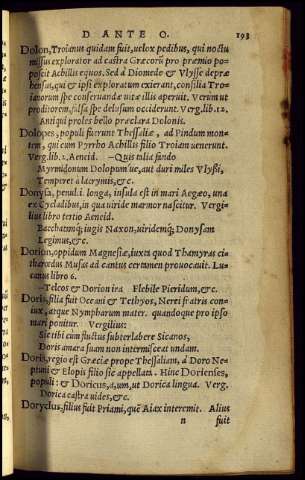 D ANTE O. 193
Dolon, Troianus quidam fuit, uelox pedibus, qui noctu
missus explorator ad castra Græcorũ pro præmio po=
poscit Achillis equos. Sed à Diomede & Vlysse depræ
hensus, qui & ipsi exploratum exierant, consilia Tro=
ianorum spe conseruandæ uitæ illis aperuit. Verùm ut
proditorem, falsa spe delusum occiderunt. Verg. lib. 12.
Antiqui proles bello præclara Dolonis.
Dolopes, populi fuerunt Thessaliæ, ad Pindum mon=
tem, qui cum Pyrrho Achillis filio Troiam uenerunt.
Verg. lib. 2. Aeneid. —Quis talia fando
Myrmidonum Dolopum´ue, aut duri miles Vlyssi,
Temperet à lacrymis, &c.
Donysa, penul. i. longa, insula est in mari Aegæo, una
ex Cycladibus, in qua uiride marmor nascitur. Vergi=
lius libro tertio Aeneid.
Bacchatamq; iugis Naxon, uiridemq; Donysam
Legimus, &c.
Dorion, oppidum Magnesiæ, iuxta quod Thamyras ci=
tharœdus Musas ad cantus certamen prouocauit. Lu=
canus libro 6.
—Telcos & Dorion ira Flebile Pieridum, &c.
Doris, filia fuit Oceani & Tethyos, Nerei fratris con=
iux, atque Nympharum mater. quandoque pro ipso
mari ponitur. Vergilius:
Sic tibi cùm fluctus subterlabere Sicanos,
Doris amara suam non intermisceat undam.
Doris, regio est Græciæ prope Thessaliam, à Doro Ne=
ptuni & Elopis filio sic appellata. Hinc Dorienses,
populi: & Doricus, a, um, ut Dorica lingua. Verg.
Dorica castra uides, &c.
Doryclus, filius fuit Priami, quẽ Aiax interemit. Alius
n fuit